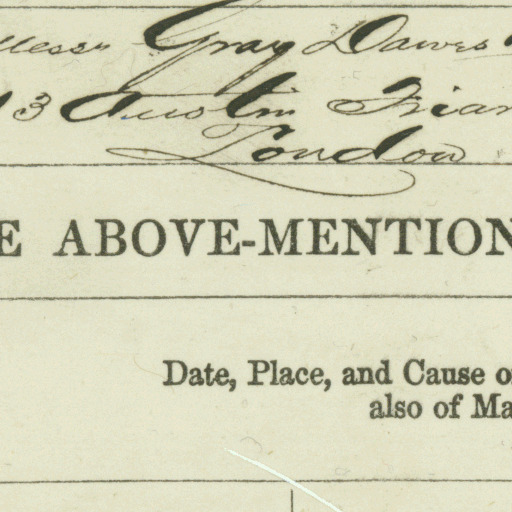 Messrs Gray Dawes
13 Austin Friar
London
E ABOVE-MENTION
Date, Place, and Cause o
also of Ma